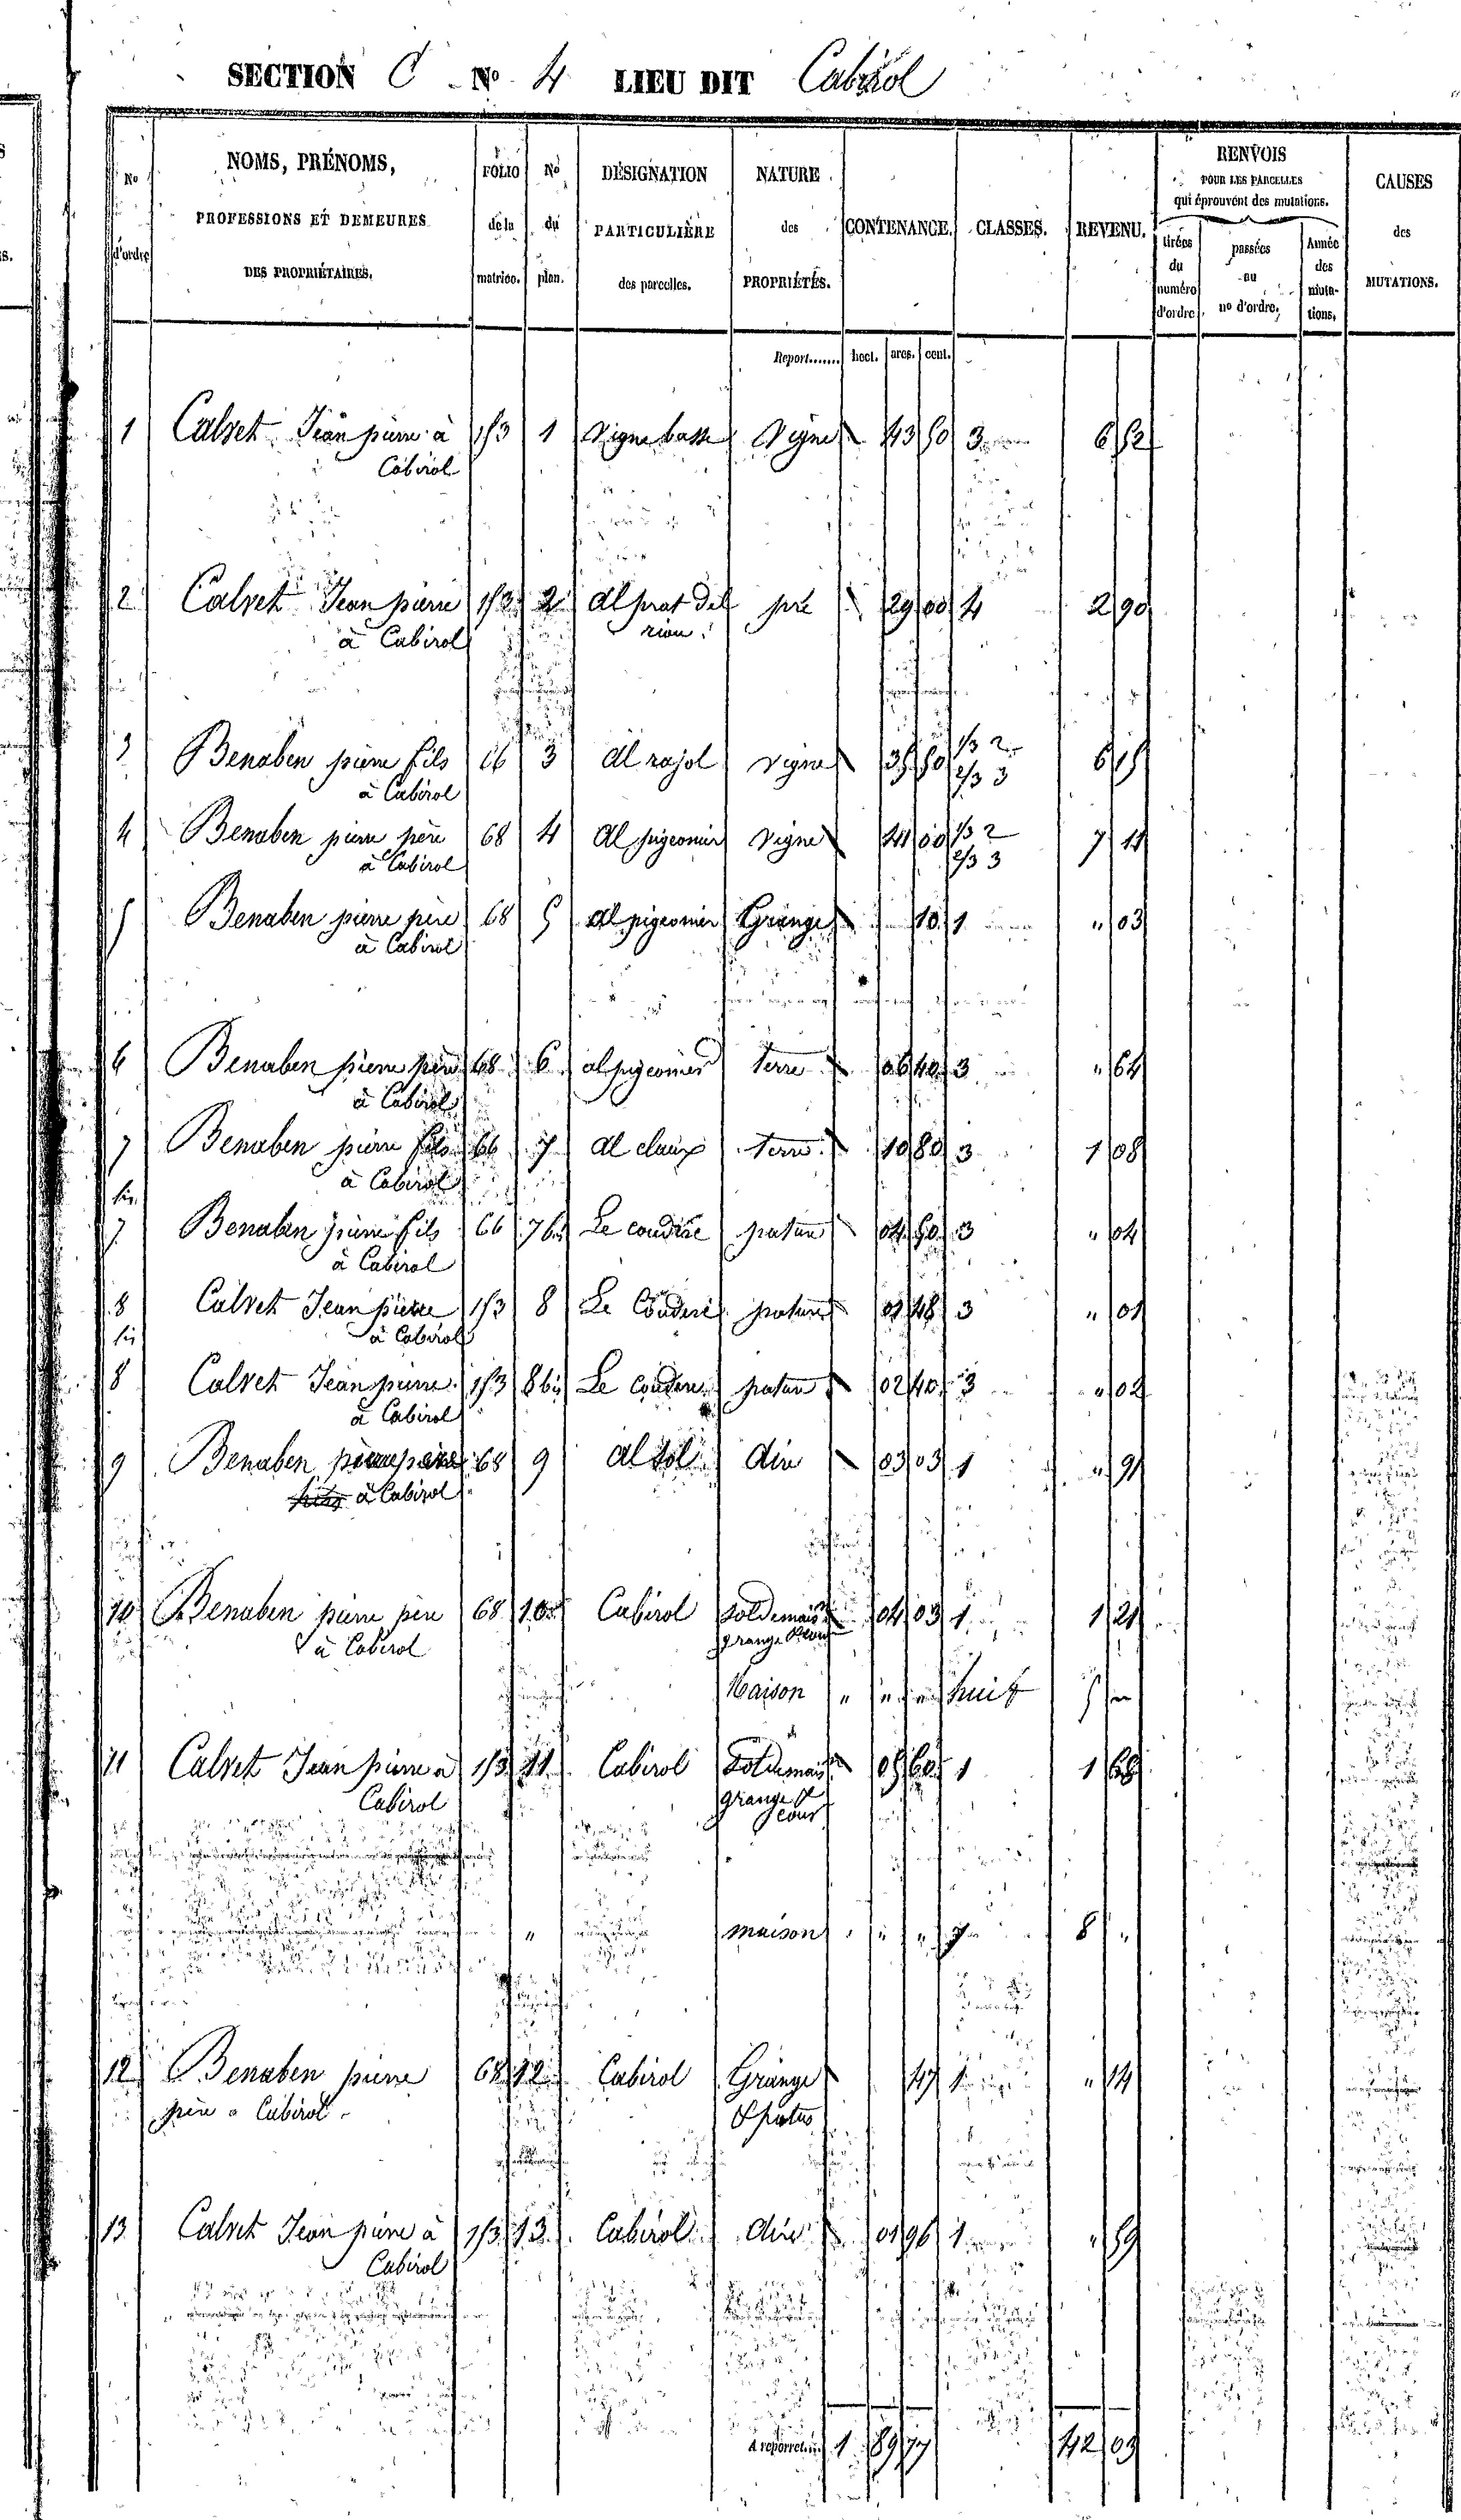 SECTION C No 4 LIEU DIT Cabirol
No d'ordre
NOMS, PRÉNOMS,
PROFESSIONS ET DEMEURES
DES PROPRIÉTAIRES.
FOLIO de la matrice.
No du plan.
DÉSIGNATION PARTICULIÈRE des parcelles.
NATURE des PROPRIÉTÉS.
CONTENANCE.
CLASSES.
REVENU.
RENVOIS
POUR LES PARCELLES
qui éprouvent des mutations.
tirées du numéro d'ordre.
passées au no d'ordre.
Année des mutations.
CAUSES des MUTATIONS.
Report....... hect. ares. cent.
1 Calvet Jean pierre à 153 1 Vigne basse Vigne 43 50 3 6 52
Cabirol
2 Calvet Jean pierre 153 2 Al prat del pré 29 00 4 2 90
à Cabirol rion
3 Benaben pierre fils 66 3 Al rajol vigne 35 50 1/3 2 6 15
à Cabirol 2/3 3
4 Benaben pierre père 68 4 Al pigeonier Vigne 41 00 1/3 2 7 11
à Cabirol 2/3 3
5 Benaben pierre père 68 5 al pigeonier Grange 10 1 " 03
à Cabirol
6 Benaben pierre père 68 6 al pigeonier terre 06 40 3 " 64
à Cabirol
7 Benaben pierre fils 66 7 Al claux terre 10 80 3 1 08
à Cabirol
bis
7 Benaben pierre fils 66 7 bis Le coudère pature 04 50 3 " 04
à Cabirol
8 Calvet Jean pierre 153 8 Le Couderc pature 01 48 3 " 01
bis à Cabirol
8 Calvet Jean pierre 153 8 bis Le Couderc pature 02 40 3 " 02
à Cabirol
9 Benaben pierre père 68 9 al sol aire 03 03 1 " 91
à Cabirol
10 Benaben pierre père 68 10 Cabirol Sol de maison 04 03 1 1 21
à Cabirol grange & cour
Maison " " " huit 5 "
11 Calvet Jean pierre à 153 11 Cabirol Sol de maison 05 60 1 1 68
Cabirol grange &
cour
" maison " " " 7 8 "
12 Benaben pierre 68 12 Cabirol Grange 47 1 " 14
père à Cabirol & patus
13 Calvet Jean pierre à 153 13 Cabirol aire 01 96 1 " 59
Cabirol
A reporter 1 89 77 42 03